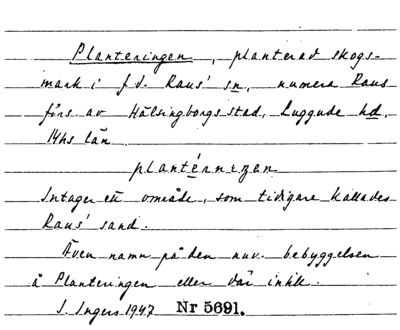 Planteringen, planterad skogs-
mark i f.d. Raus' sn, numera Raus
förs. av Hälsingborgs stad, Luggude hd,
M-hs län
plantéringen
Intager ett område, som tidigare kallades
Raus' sand.
Även namn på den nuv. bebyggelsen
å Planteringen eller där intill.
I. Ingers 1947 Nr 5691.